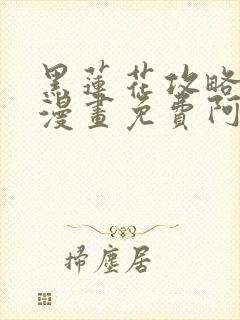 黑蓮花攻略
漫畫免費阿
掃塵居